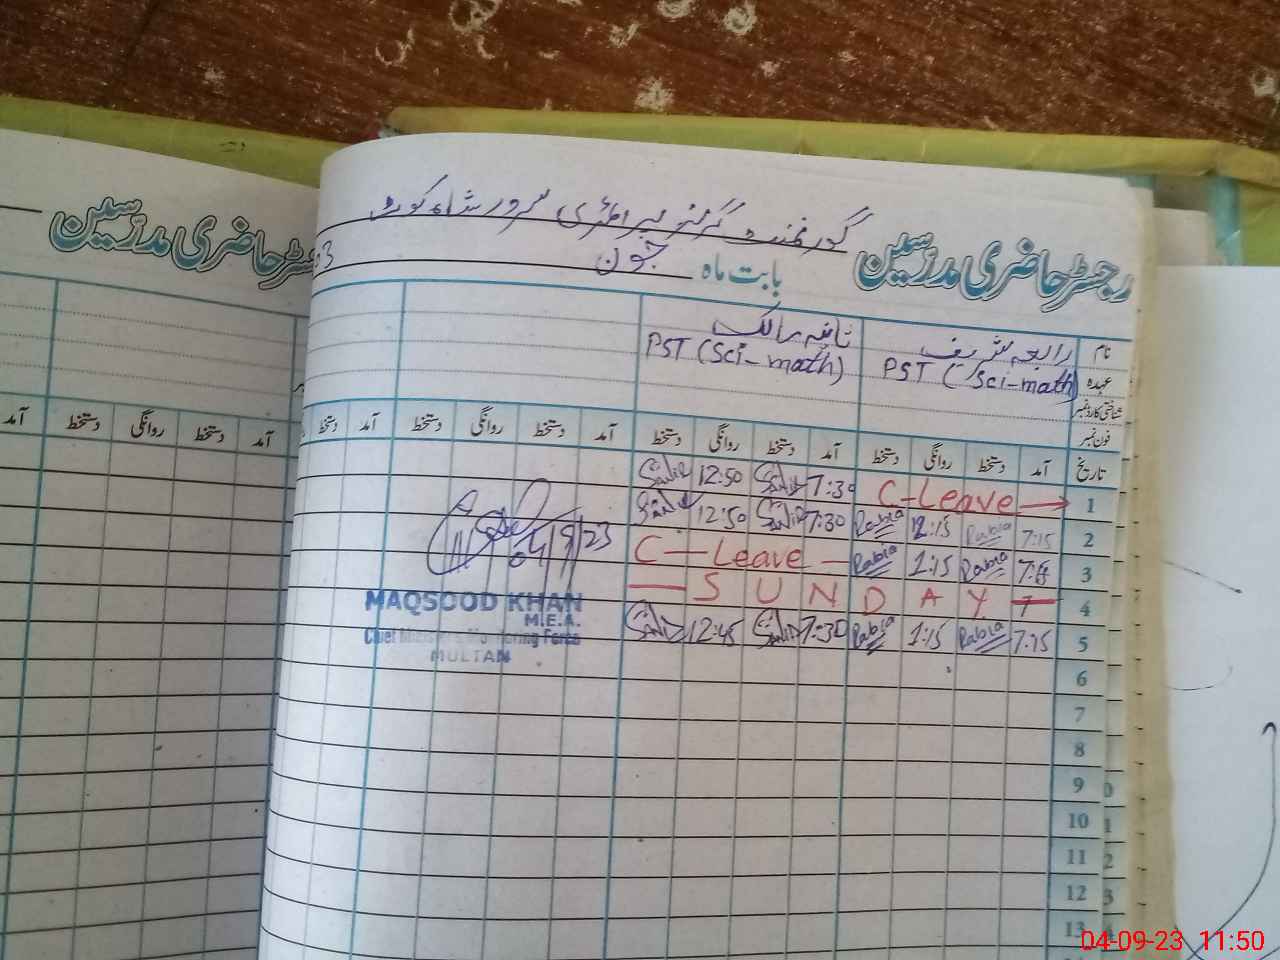 گورنمنٹ گرلز پرائمری سرور شاہ کوٹ
رجسٹر حاضری مدرّسین
بابت ماہ جون
3
رجسٹر حاضری مدرّسین
نام رابعہ شریف
عہدہ PST (Sci-math) PST (Sci-math)
شناختی کارڈ نمبر
فون نمبر
تاریخ آمد دستخط روانگی دستخط آمد دستخط روانگی دستخط آمد دستخط روانگی دستخط آمد دستخط
آمد دستخط روانگی دستخط آمد
1 C-Leave 7:30 12:50
2 7:15 Rabia 12:15 Rabia 7:30 12:50
3 Rabia 1:15 Rabia C - Leave
4 S U N D A Y
5 7:15 Rabia 1:15 Rabia 7:30 12:45
6
7
8
9
10
11
12
13
04/9/23
MAQSOOD KHAN
M.E.A.
Chief Minister's Monitoring Force
MULTAN
04-09-23 11:50